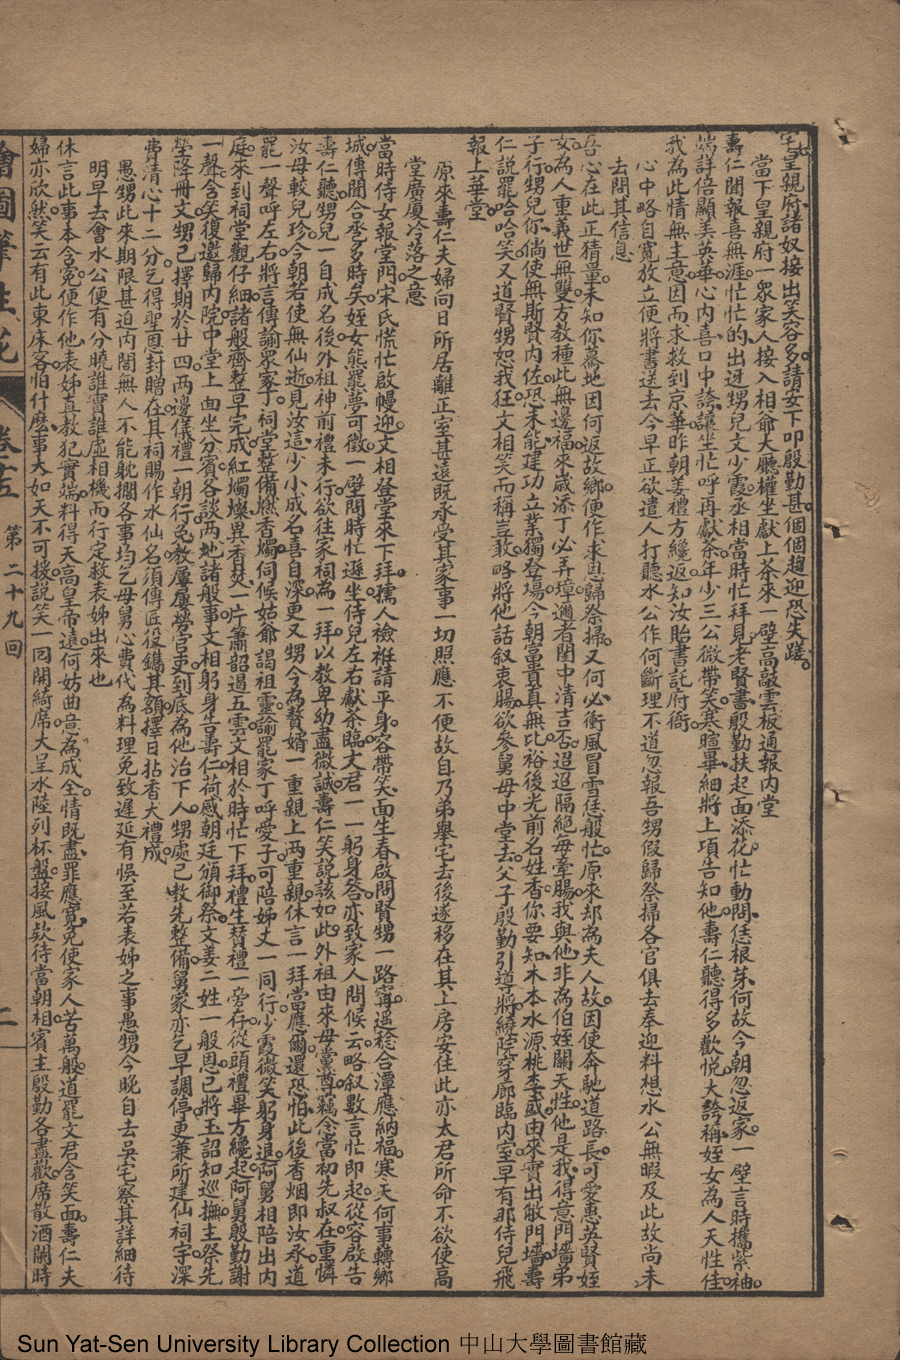 宅皇親府諸奴接出笑容多請安下叩殷勤甚個個趨迎恐失蹉
當下皇親府一衆家人接入相爺大廳權坐獻上茶來一壁高敲雲板通報內堂
壽仁聞報喜無涯忙忙的出迓甥兒文少霞丞相當時忙拜見老賢書殷勤扶起面添花忙動問恁根芽何故今朝忽返家一壁言時攜紫袖
端詳倍顯美英華心內喜口中誇讓坐忙呼再獻茶年少三公微帶笑寒暄畢細將上項告知他壽仁聽得多歡悅大誇稱姪女為人天性佳
我為此情無主意因而求救到京華昨朝姜禮方纔返知汝貽書託府衙
心中略自寬放立便將書送去今早正欲遣人打聽水公作何斷理不道忽報吾甥假歸祭掃各官俱去奉迎料想水公無暇及此故尚未
去問其信息
吾心在此正猜量未知你驀地因何返故鄉便作求恩歸祭掃又何必衝風冒雪恁般忙原來却為夫人故因使奔馳道路長可愛惠英賢姪
女為人重義世無雙方教種此無邊福來歲添丁必弄璋適者閨中清吉否迢迢隔絕毋牽腸我與他非為伯姪關天性他是我得意門墻弟
子行甥兒你倘使無斯賢內佐恐未能建功立業獨登場今朝富貴真無比裕後光前名姓香你要知木本水源桃李盛由來實出敝門墻壽
仁說罷哈哈笑又道賢甥恕我狂文相笑而稱豈敢略將他話叙衷腸欲參舅母中堂去父子殷勤引導將繞院穿廊臨內室早有那侍兒飛
報上華堂
原來壽仁夫婦向日所居離正室甚遠既承受其家事一切照應不便故自乃弟舉宅去後遂移在其上房安住此亦太君所命不欲使高
堂廣廈冷落之意
當時侍女報堂門宋氏慌忙啟幔迎文相登堂來下拜孺人襝袵請平身容帶笑面生春啟問賢甥一路寗遙稔合潭應納福寒天何事轉鄉
城傳聞合丞多時矣姪女熊羆夢可徵一壁問時忙遜坐侍兒左右獻茶臨文君一一躬身答亦致家人問候云略叙數言忙即起從容啟告
壽仁聽甥兒一自成名後外祖神前禮未行欲往家祠為一拜以教卑幼盡微誠壽仁笑說該如此外祖由來毋黨尊竊念當初先叔在重憐
汝母較兒珍今朝若使無仙逝見汝這少小成名喜自深更又甥今為贅婿一重親上兩重親休言一拜當應爾還恐怕此後香烟即汝承道
罷一聲呼左右將言傳諭眾家丁祠堂整備燃香燭伺候姑爺謁祖靈諭罷家丁呼愛子可陪姊丈一同行少霞微笑躬身退阿舅相陪出內
庭來到祠堂觀仔細諸般齊整早完成紅燭燦異香焚一片簫韶遏五雲文相於時忙下拜禮生贊禮一旁存從頭禮畢方纔起阿舅殷勤謝
一聲含笑復邀歸內院中堂上面坐分賓各談兩地諸般事文相躬身告壽仁荷感朝廷頒御祭文姜二姓一般恩已將玉詔知巡撫主祭先
塋降冊文甥已擇期於廿四兩邊儀禮一朝行免教屢屢勞官吏到底為他治下人甥處已教先整備舅家亦乞早調停更兼所建仙祠宇深
費清心十二分乞得聖恩封贈在其祠賜作水仙名須傳匠役鐫其額擇日拈香大禮成
愚甥此來期限甚迫內閣無人不能躭擱各事均乞母舅心費代為料理免致遲延有悞至若表姊之事愚甥今晚自去吳宅察其詳細待
明早去會水公便有分曉誰實誰虛相機而行定救表姊出來也
休言此事本含寃便作他表姊真教犯實端料得天高皇帝遠何妨曲意為成全情既盡罪應寬免使家人苦萬般道罷文君含笑面壽仁夫
婦亦欣然笑云有此東床客怕什麼事大如天不可援說笑一囘開綺席大呈水陸列杯盤接風欵待當朝相賓主殷勤各盡歡席散酒闌時
繪圖筆生花 卷十五 第二十九回 二
Sun Yat-Sen University Library Collection 中山大學圖書館藏